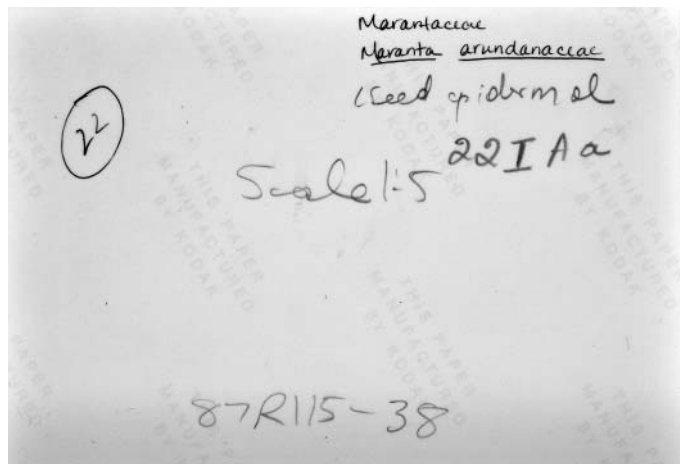 Marantaceae
Maranta arundanaceae
(Seed epidermal
22 I A a
22
Scale 1:5
87R115-38
THIS PAPER
MANUFACTURED
BY KODAK